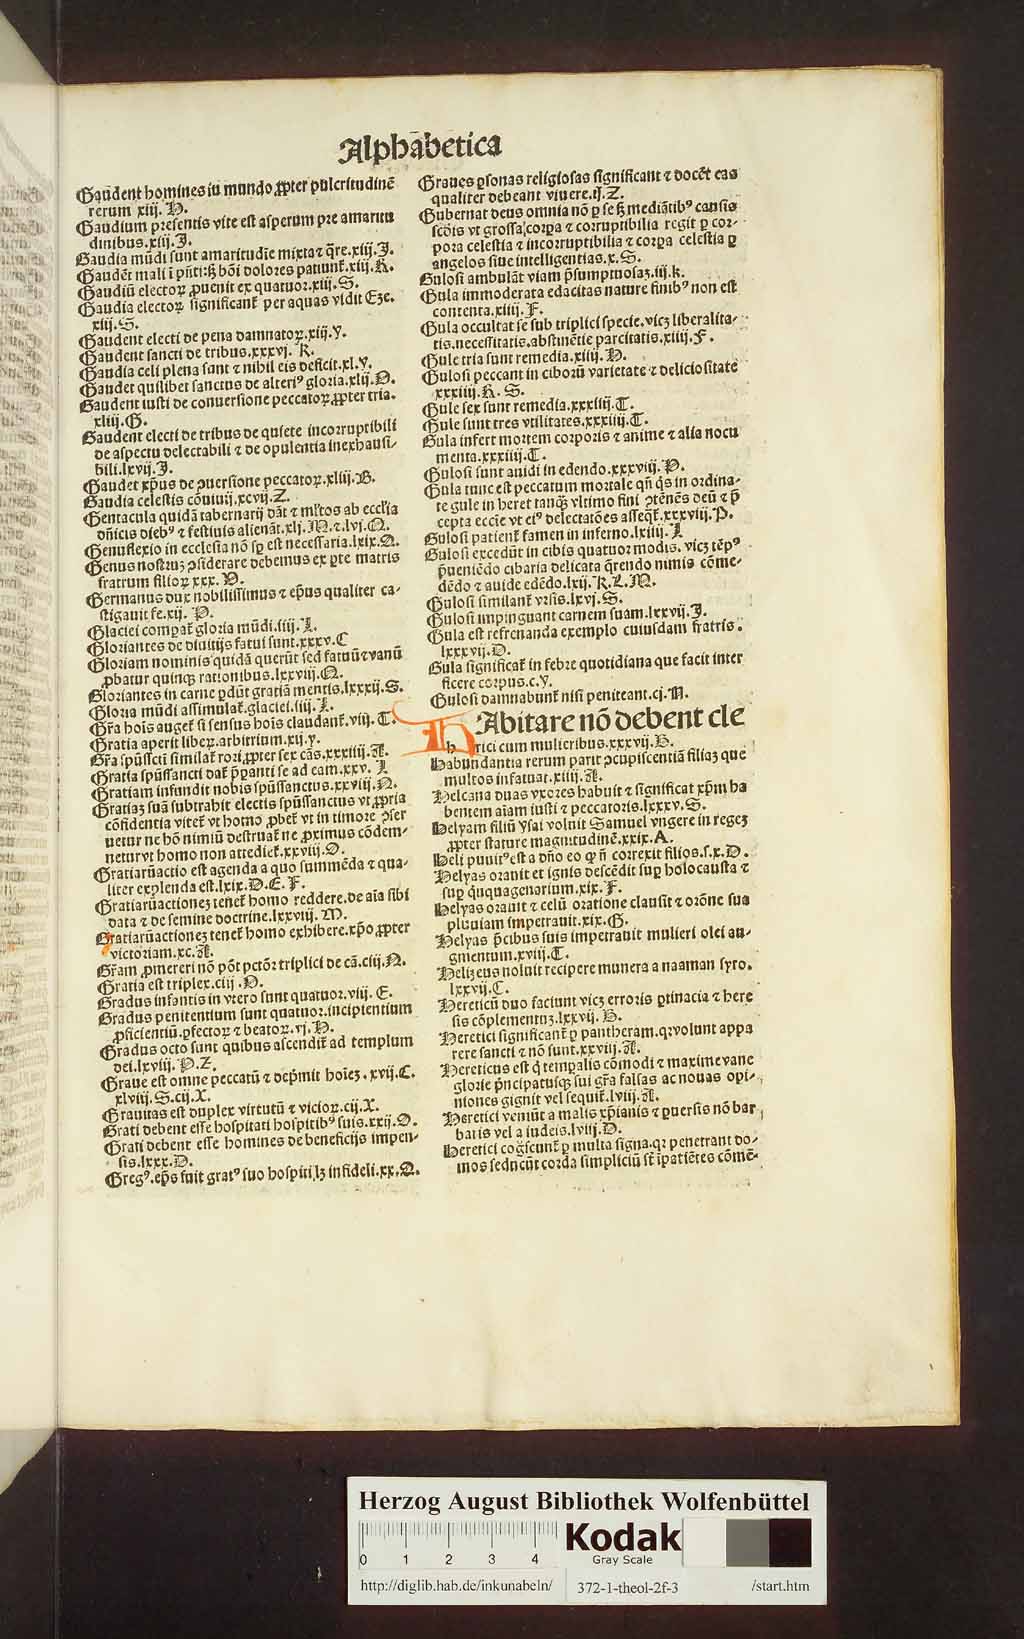 Alphabetica
Gaudent homines in mundo ꝓpter pulcritudinē
rerum xiij. H.
Gaudium presentis vite est asperum pre amaritu
dinibus.xiij.J.
Gaudia mūdi sunt amaritudīe mixta ⁊ q̄re.xiij.J.
Gaudēt mali ī pn̄ti:sꝫ bōi dolores patiunt̄.xiij.K.
Gaudiū electoꝝ ꝓuenit ex quatuor.xiij.S.
Gaudia electoꝝ significant̄ per aquas vidit Eze.
xiij.S.
Gaudent electi de pena damnatoꝝ.xiij.y.
Gaudent sancti de tribus.xxxvj. K.
Gaudia celi plena sunt ⁊ nihil eis deficit.xl.y.
Gaudet quilibet sanctus de alteriꝰ gloria.xlij.O.
Gaudent iusti de conuersione peccatoꝝ.ꝓpter tria.
xliij.G.
Gaudent electi de tribus de quiete incorruptibili
de aspectu delectabili ⁊ de opulentia inexhausi-
bili.lxvij.J.
Gaudet xp̄us de ꝯuersione peccatoꝝ.xliij.B.
Gaudia celestis cōuiuij.xcvij.Z.
Gentacula quidā tabernarij dāt ⁊ ml̄tos ab eccl̄ia
dn̄icis diebꝰ ⁊ festiuis alienāt.xlj.M.⁊.lvj.Q.
Genuflexio in ecclesia nō sꝑ est necessaria.lxix.Q.
Genus nostruꝫ ꝯsiderare debemus ex ꝑte matris
fratrum filioꝝ.xxx. O.
Germanus dux nobilissimus ⁊ ep̄us qualiter ca-
stigauit se.xij. P.
Glaciei comparat̄ gloria mūdi.iiij.J.
Gloriantes de diuitijs fatui sunt.xxxv.C
Gloriam nominis quidā querūt sed fatuū ⁊ vanū
ꝓbatur quinqꝫ rationibus.lxxviij.Q.
Gloriantes in carne ꝑdūt gratiā mentis.lxxxij.S.
Gloria mūdi assimulat̄.glaciei.iiij.J.
Gr̄a hois auget̄ si sensus hois claudant̄.viij.T.
Gratia aperit libeꝝ.arbitrium.xij.y.
Gr̄a spūssctī similat̄ rori ꝓpter sex cās.xxxiiij.A.
Gratia spūssancti dat̄ p̄panti se ad eam.xxv. J
Gratiam infundit nobis spūssanctus.xxviij.N.
Gratiaꝫ suā subtrahit electis spūssanctus vt ꝓpria
cōfidentia vitet̄ vt homo ꝓbet̄ vt in timore ꝯser
uetur ne bō nimiū destruat̄ ne ꝓximus cōdem-
neturvt homo non attediet̄.xxviij.O.
Gratiarūactio est agenda a quo summēda ⁊ qua-
liter explenda est.lxix.D.E.F.
Gratiarūactioneꝫ tenet̄ homo reddere.de aīa sibi
data ⁊ de semine doctrine.lxxviij.M.
Gratiarūactioneꝫ tenet̄ homo exhibere.xp̄o.ꝓpter
victoriam.xc.A.
Gr̄am ꝓmereri nō pōt pctōꝝ triplici de cā.ciij.N.
Gratia est triplex.ciij.O.
Gradus infantis in vtero sunt quatuor.viij. E.
Gradus penitentium sunt quatuor.incipientium
ꝓficientiū.ꝑfectoꝝ ⁊ beatoꝝ.vj.H.
Gradus octo sunt quibus ascendit̄ ad templum
dei.lxviij.P.Z.
Graue est omne peccatū ⁊ dep̄mit hoīeꝫ.xvij.C.
xlviij.S.cij.X.
Grauitas est duplex virtutū ⁊ vicioꝝ.cij.X.
Grati debent esse hospitati hospitibꝰ suis.xxij.O.
Grati debent esse homines de beneficijs impen-
sis.lxxx.D.
Gregꝰ.ep̄s fuit gratꝰ suo hospiti lꝫ infideli.xx.Q.
Graues ꝑsonas religiosas significant ⁊ docēt eas
qualiter debeant viuere.ij.Z.
Gubernat deus omnia nō ꝑ se sꝫ mediātibꝰ causis
scd̄is vt grossa corpa ⁊ corruptibilia regit ꝑ cor-
pora celestia ⁊ incorruptibilia ⁊ corpa celestia ꝑ
angelos siue intelligentias.x.S.
Gulosi ambulāt viam p̄sumptuosaꝫ.iij.k.
Gula immoderata edacitas nature finibꝰ non est
contenta.xiiij.F.
Gula occultat se sub triplici specie.vicꝫ liberalita-
tis.necessitatis.abstinētie parcitatis.xiiij.F.
Gule tria sunt remedia.xiiij.H.
Gulosi peccant in ciborū varietate ⁊ deliciositate
xxxiiij.R. S.
Gule sex sunt remedia.xxxiiij.T.
Gule sunt tres vtilitates.xxxiiij.T.
Gula infert mortem corporis ⁊ anime ⁊ alia nocu
menta.xxxiiij.T.
Gulosi sunt auidi in edendo.xxxviij.P.
Gula tunc est peccatum mortale qn̄ q̇s in ordina-
te gule in heret tanqꝫ vltimo fini ꝯtēnēs deū ⁊ p̄
cepta eccīe vt eiꝰ delectatōes asseqt̄.xxxviij.P.
Gulosi patient̄ famen in inferno.lxiiij.J
Gulosi excedūt in cibis quatuor modis. vicꝫ tēpꝰ
p̄ueniēdo cibaria delicata q̄rendo nimis cōme-
dēdo ⁊ auide edēdo.lxij.K.L.M.
Gulosi similant̄ vrsis.lxvj.S.
Gulosi impinguant carnem suam.lxxvij.J.
Gula est refrenanda exemplo cuiusdam fratris.
lxxxvij.D.
Gula significat̄ in febre quotidiana que facit inter
ficere corpus.c.y.
Gulosi damnabunt̄ nisi peniteant.cj.N.
HAbitare nō debent cle
rici cum mulieribus.xxxvij.B.
Habundantia rerum parit ꝯcupiscentiā filiaꝫ que
multos infatuat.xiiij.A.
Helcana duas vxores habuit ⁊ significat xp̄m ha
bentem aīam iusti ⁊ peccatoris.lxxxv.S.
Helyam filiū ysai voluit Samuel vngere in regeꝫ
ꝓpter stature magnitudinē.xxix.A.
Heli punitꝰ est a dn̄o eo ꝙ n̄ correxit filios.s.x.D.
Helyas orauit et ignis descēdit suꝑ holocausta ⁊
suꝑ q̇nquagenarium.xix.F.
Helyas orauit ⁊ celū oratione clausit ⁊ orōne sua
pluuiam impetrauit.xix.G.
Helyas p̄cibus suis impetrauit mulieri olei au-
gmentum.xviij.T.
Helizeus noluit recipere munera a naaman syro.
lxxvij.C.
Hereticū duo faciunt vicꝫ erroris ꝑtinacia ⁊ here
sis cōplementuꝫ.lxxvij. B.
Heretici significant̄ ꝑ pantheram.qꝛ volunt appa
rere sancti ⁊ nō sunt.xxviij.A.
Hereticus est q̇ tempalis cōmodi ⁊ maxime vane
glorie p̄ncipatuiqꝫ sui gr̄a falsas ac nouas opi-
niones gignit vel sequit̄.lviij.A.
Heretici veniūt a malis xp̄ianis ⁊ ꝑuersis nō bar
baris vel a iudeis.lviij.D.
Heretici cogscunt̄ ꝑ multa signa.qꝛ penetrant do-
mos seducūt corda simpliciū st̄ ipatiētes cōmē-
Herzog August Bibliothek Wolfenbüttel
0 1 2 3 4
Kodak
Gray Scale
http://diglib.hab.de/inkunabeln/ 372-1-theol-2f-3 /start.htm